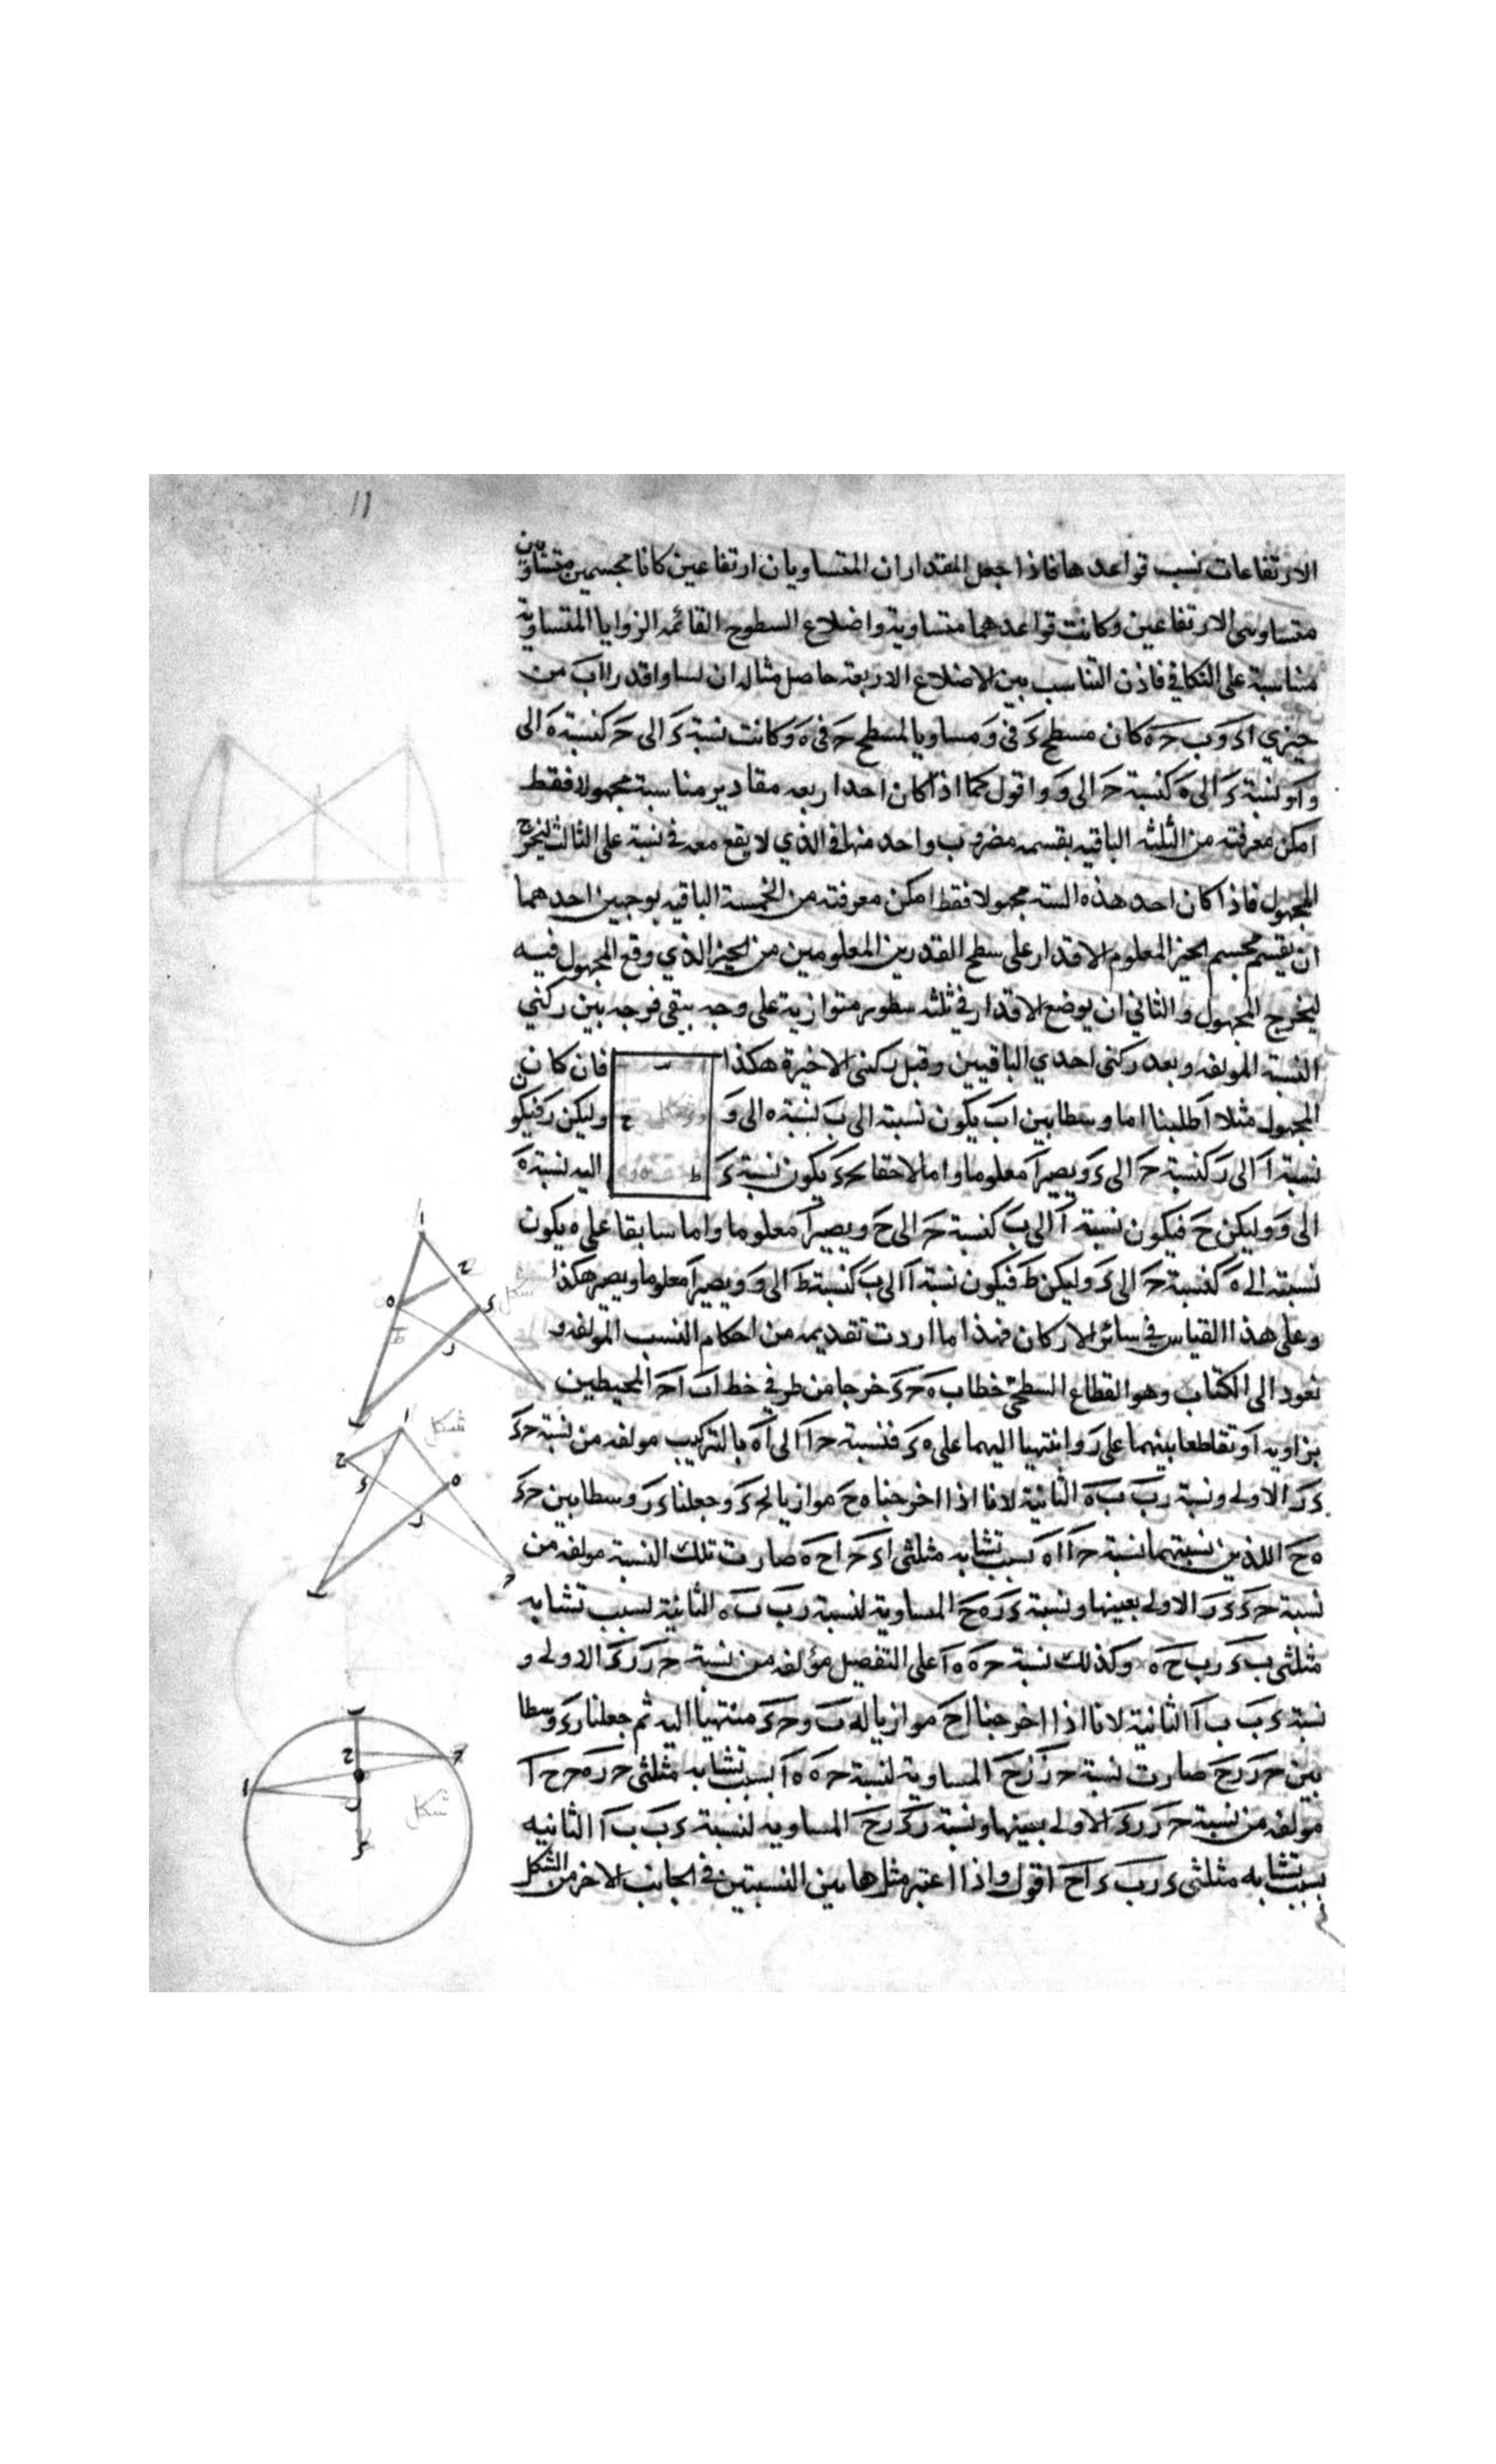 11
الارتفاعات نسب قواعدها فاذا جعل المقداران المتساويان ارتفاعين كانا مجسمين متساويين
متساويى الارتفاعين وكانت قواعدهما متساوية واضلاع السطوح القائمه الزوايا المتساوية
متناسبة على التكافى فاذن التناسب بين الاضلاع الاربعة حاصل مثاله ان تساوا قدرا اب من
حيزي اءو وب حه كان مسطح ء فى و مساويا لمسطح ح فى ه وكانت نسبة ء الى ح كنسبة ه الى
و او نسبة ء الى ه كنسبة ح الى و واقول كما اذا كان احد اربعه مقادير متناسبة مجهولا فقط
امكن معرفته من الثلثه الباقيه بقسمه مضروب واحد منها فى الذي لا يقع معه فى نسبة على الثالث ليخرج
المجهول فاذا كان احد هذه الستة مجهولا فقط امكن معرفته من الخمسة الباقيه بوجهين احدهما
ان يقسم مجسم الحيز المعلوم الاقدار على سطح القدرين المعلومين من الحيز الذي وقع المجهول فيه
ليخرج المجهول والثاني ان يوضع الاقدار فى ثلثه سطور متوازية على وجه يبقى فرجه بين ركني
النسبة المولفه وبعد ركنى احدي الباقيين وقبل ركنى الاخيرة هكذا فان كان
المجهول مثلا ا طلبنا اما وسطا بين اب يكون نسبته الى ب نسبة ه الى و وليكن ر فيكون
نسبة ا الى ر كنسبة ح الى ء ويصير ا معلوما واما لاحقا لحء يكون نسبة ء اليه نسبة ه
الى و وليكن ح فيكون نسبة ا الى ب كنسبة ح الى ح ويصير ا معلوما واما سابقا على ه يكون
نسبته الى ه كنسبة ح الى ء وليكن ط فيكون نسبة ا الى ب كنسبة ط الى و ويصير ا معلوما ويصير هكذا
وعلى هذا القياس فى سائر الاركان فهذا ما اردت تقديمه من احكام النسب المولفه و
نعود الى الكتاب وهو القطاع السطحى خطا ب ه حء خرجا من طرفي خط اب اح المحيطين
بزاويه ا وتقاطعا بينهما على ر وانتهيا اليهما على ه ء فنسبة ح ا الى اه بالتركيب مولفه من نسبة حء
ءر الاولى ونسبة رب به الثانية لانا اذا اخرجنا ه ح موازيا لحء وجعلنا ءر وسطا بين حء
ه ح اللذين نسبتهما نسبة ح ا اه بسبب تشابه مثلثى اءح اح ه صارت تلك النسبة مولفه من
نسبة حء ءر الاولى بعينها ونسبة ءر ه ح المساوية لنسبة رب به الثانية بسبب تشابه
مثلثى ب ءر ب ح ه وكذلك نسبة ح ه ه ا على التفصيل مؤلفه من نسبة ح ر رء الاولى و
نسبة ءب ب ا الثانية لانا اذا اخرجنا اح موازيا له ب وحء منتهيا اليه ثم جعلنا رء وسطا
بين ح ر رح صارت نسبة ح ر رح المساوية لنسبة ح ه ه ا بسبب تشابه مثلثى ح ر ه ح ح ا
مولفه من نسبة ح ر رء الاولى بعينها ونسبة رء رح المساويه لنسبة ءب ب ا الثانيه
بسبب تشابه مثلثى ء رب ء اح اقول واذا اعتبر مثل ها بين النسبتين فى الجانب الاخر من الشكل
شكل
شكل
شكل